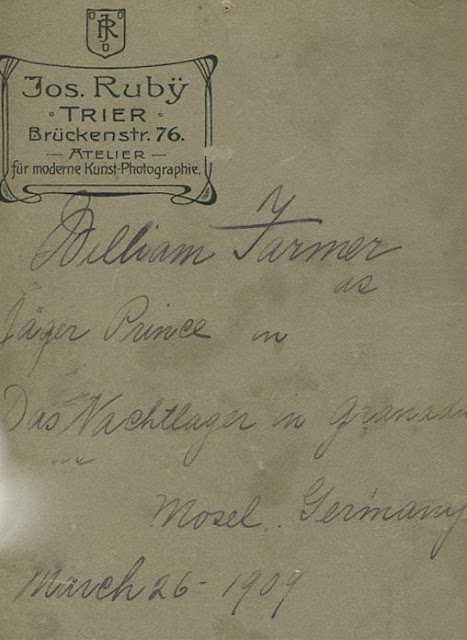 JR
Jos. Rubÿ
TRIER
Brückenstr. 76.
— ATELIER —
für moderne Kunst-Photographie.
William Farmer
as
Jäger Prince in
Das Nachtlager in Granada
Mosel, Germany
March 26 - 1909